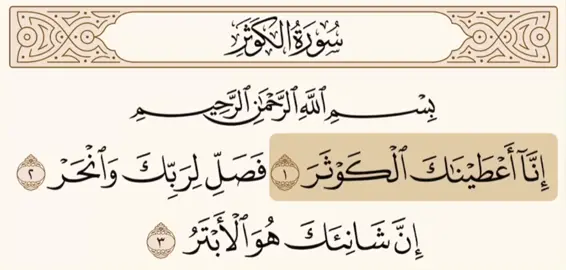 سُورَةُ الْكَوْثَرِ
بِسْمِ اللَّهِ الرَّحْمَٰنِ الرَّحِيمِ
إِنَّآ أَعْطَيْنَاكَ ٱلْكَوْثَرَ ١ فَصَلِّ لِرَبِّكَ وَٱنْحَرْ ٢
إِنَّ شَانِئَكَ هُوَ ٱلْأَبْتَرُ ٣